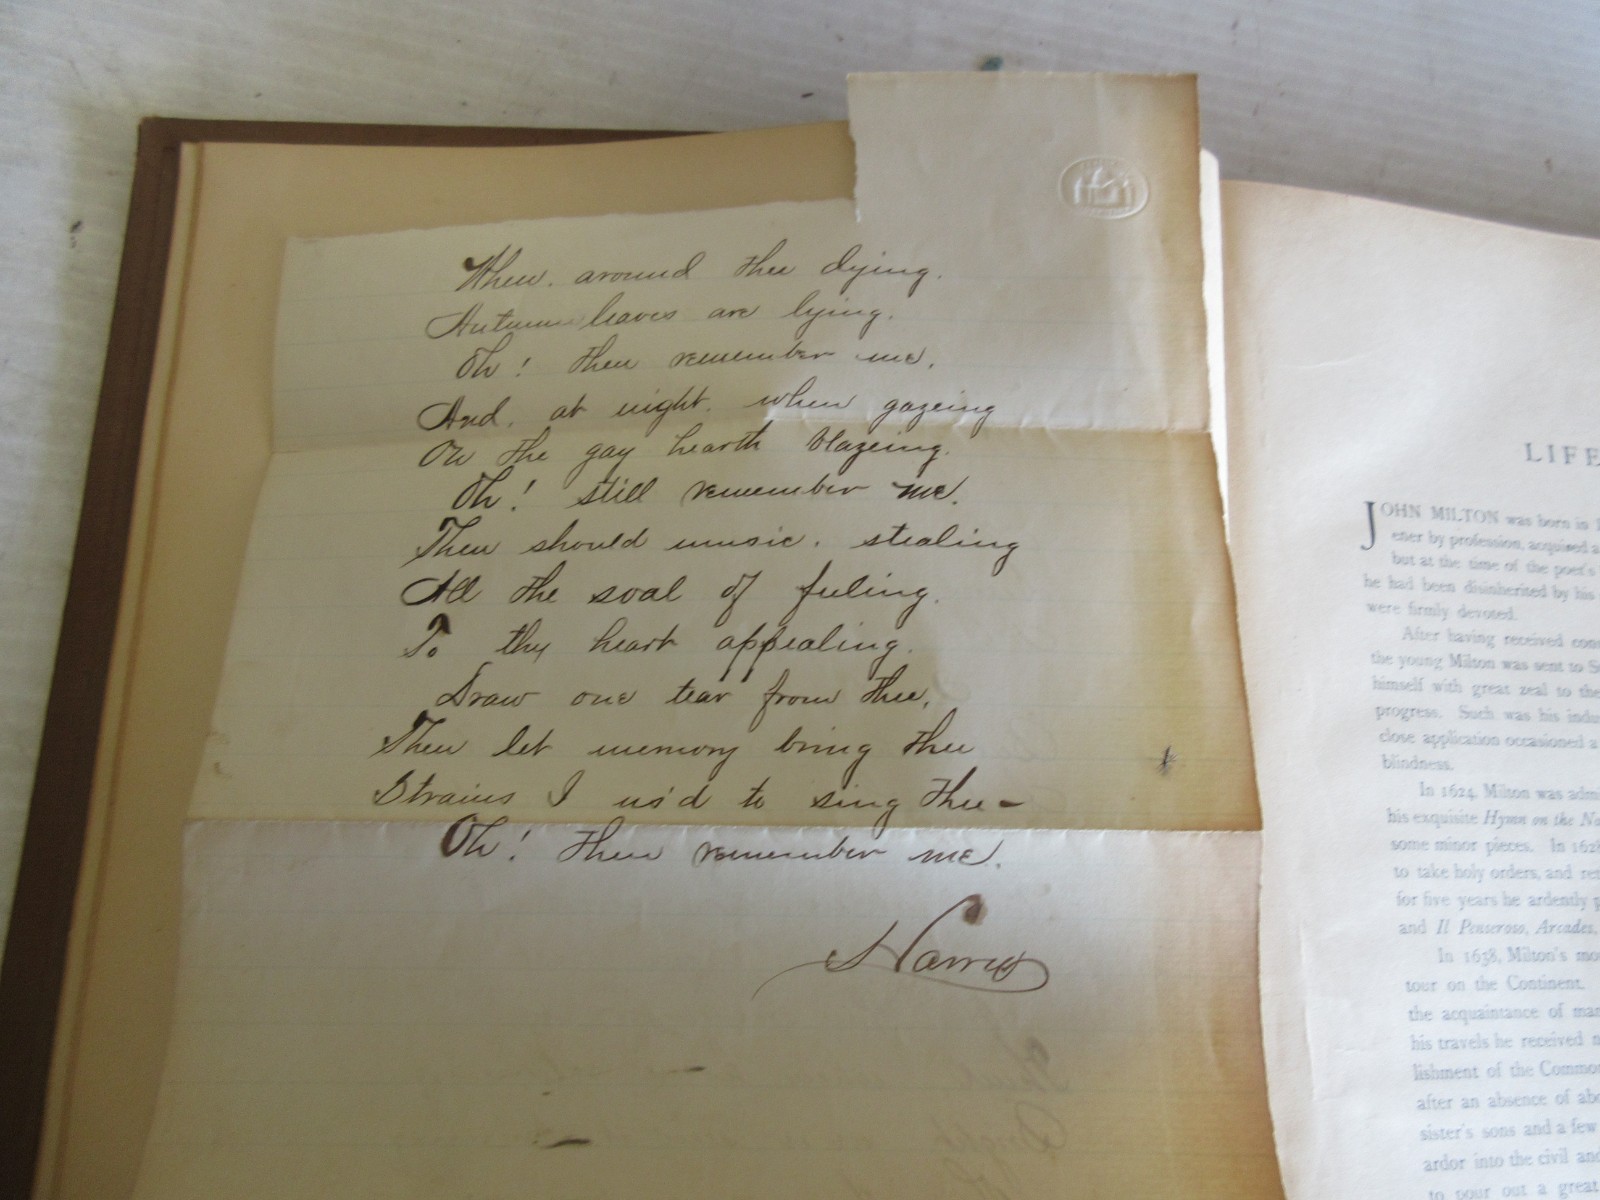 When. around thee dying.
Autumn leaves are lying.
Oh! then remember me.
And. at night. when gazeing
On the gay hearth blazeing.
Oh! still remember me.
Then should music. stealing
All the soal of feeling.
To thy heart appealing.
Draw one tear from thee.
Then let memory bring thee
Strains I us'd to sing thee-
Oh! then remember me.
Harris
LIFE
JOHN MILTON was born in
ener by profession, acquired a
but at the time of the poet's
he had been disinherited by his
were firmly devoted.
After having received
the young Milton was sent to
himself with great zeal to the
progress. Such was his
close application occasioned a
blindness.
In 1624, Milton was
his exquisite Hymn on the
some minor pieces. In
to take holy orders, and
for five years he ardently
and Il Penseroso, Arcades,
In 1638, Milton's
tour on the Continent.
the acquaintance of
his travels he received
lishment of the
after an absence of
sister's sons and a few
ardor into the civil and
to pour out a great